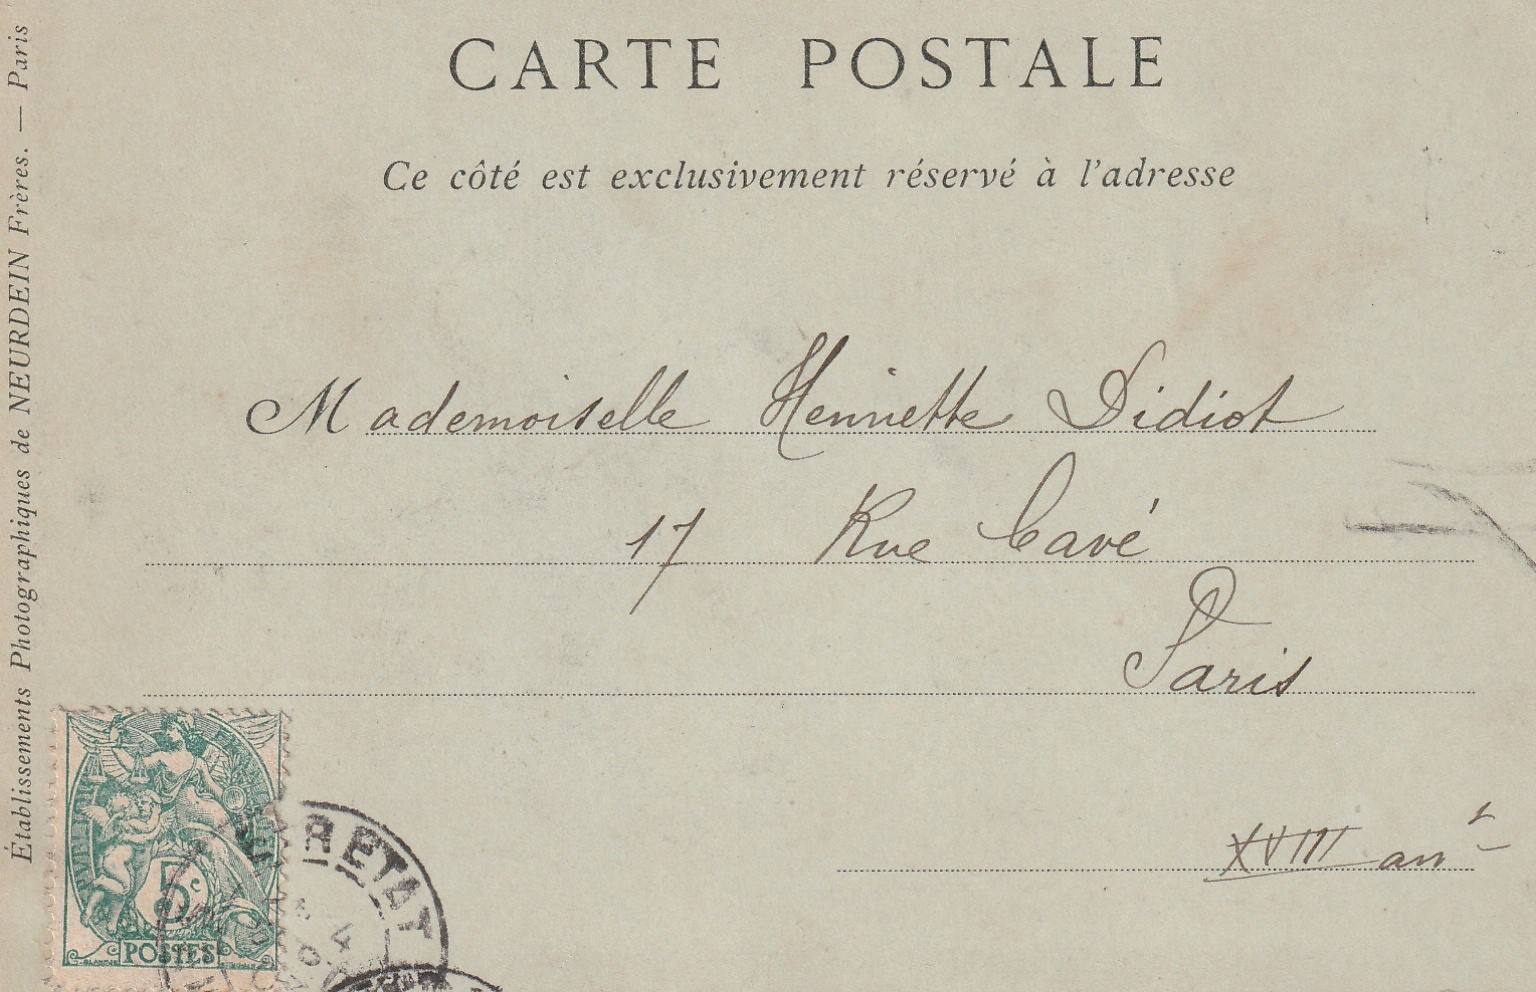 CARTE POSTALE
Ce côté est exclusivement réservé à l'adresse
Établissements Photographiques de NEURDEIN Frères. — Paris
Mademoiselle Henriette Didiot
17 Rue Cavé
Paris
XVIII arrt
5c
POSTES